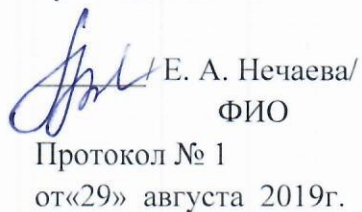 Е. А. Нечаева/
ФИО
Протокол № 1
от«29» августа 2019г.